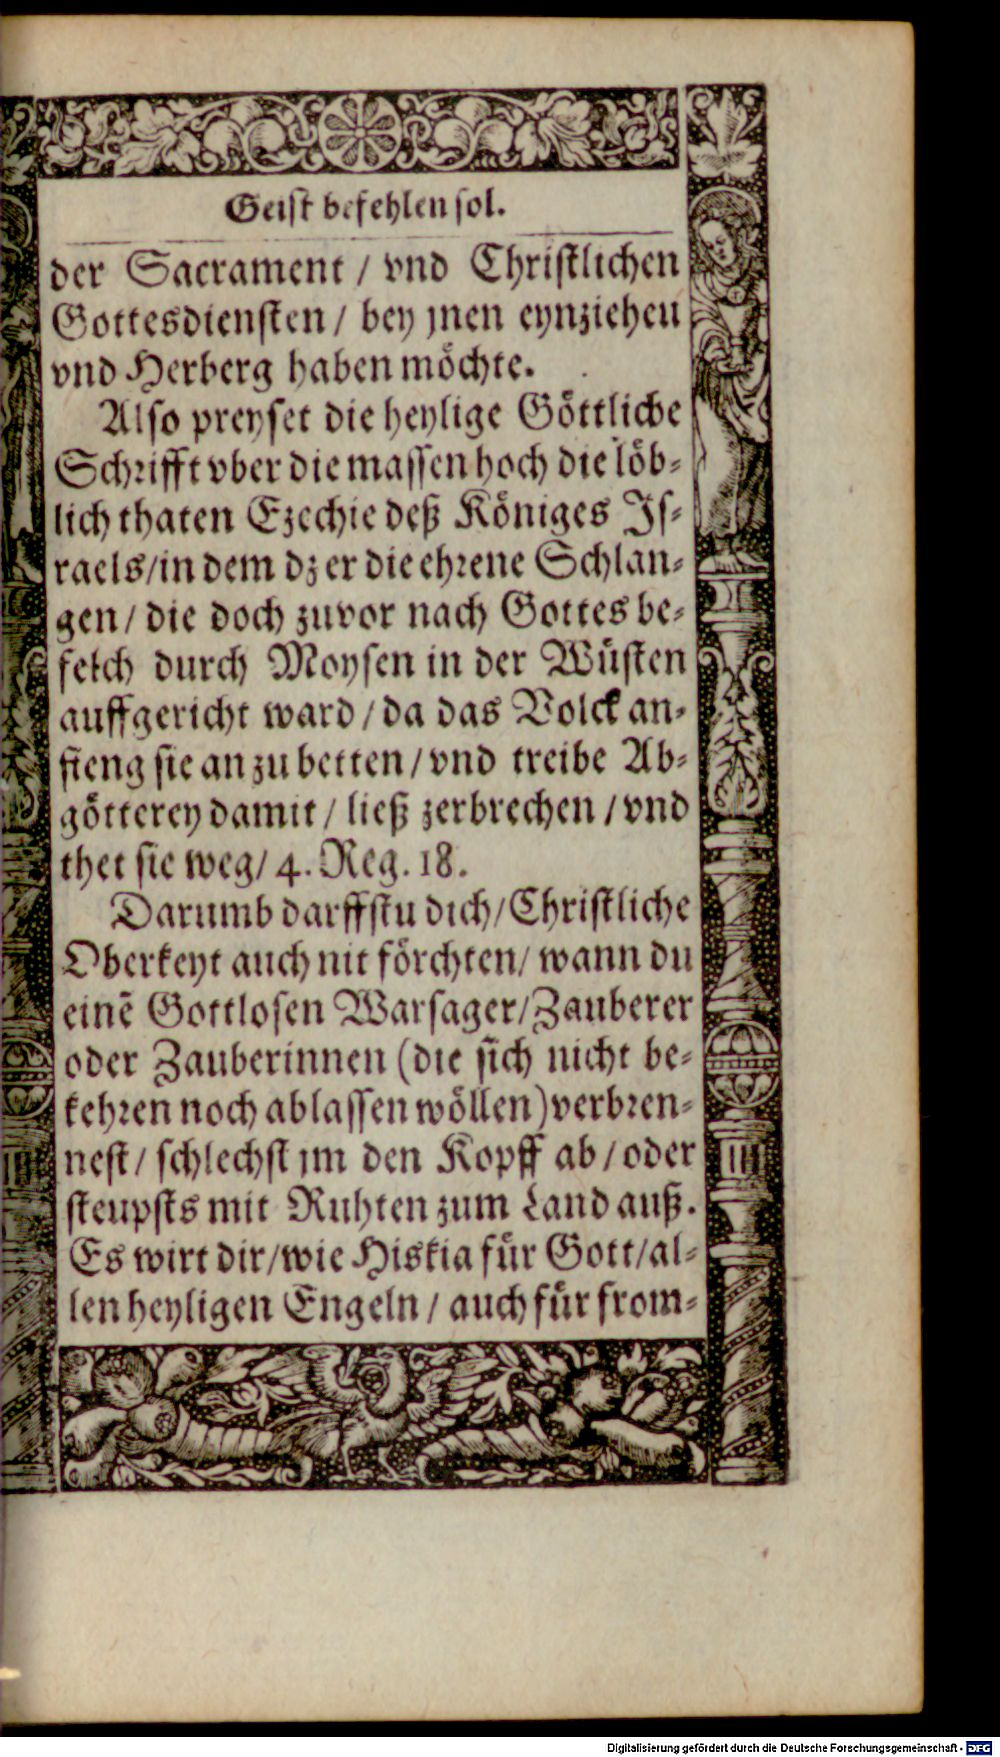 Geist befehlen sol.
der Sacrament / vnd Christlichen
Gottesdiensten / bey jnen eynziehen
vnd Herberg haben möchte.
Also preyset die heylige Göttliche
Schrifft vber die massen hoch die löb-
lich thaten Ezechie deß Königes Js-
raels / in dem dz er die ehrene Schlan-
gen / die doch zuvor nach Gottes be-
felch durch Moysen in der Wüsten
auffgericht ward / da das Volck an-
fieng sie an zu betten / vnd treibe Ab-
götterey damit / ließ zerbrechen / vnd
thet sie weg / 4. Reg. 18.
Darumb darffstu dich / Christliche
Oberkeyt auch nit förchten / wann du
einē Gottlosen Warsager / Zauberer
oder Zauberinnen (die sich nicht be-
kehren noch ablassen wöllen) verbren-
nest / schlechst jm den Kopff ab / oder
steupsts mit Ruhten zum Land auß.
Es wirt dir / wie Hiskia für Gott / al-
len heyligen Engeln / auch für from-
Digitalisierung gefördert durch die Deutsche Forschungsgemeinschaft - DFG